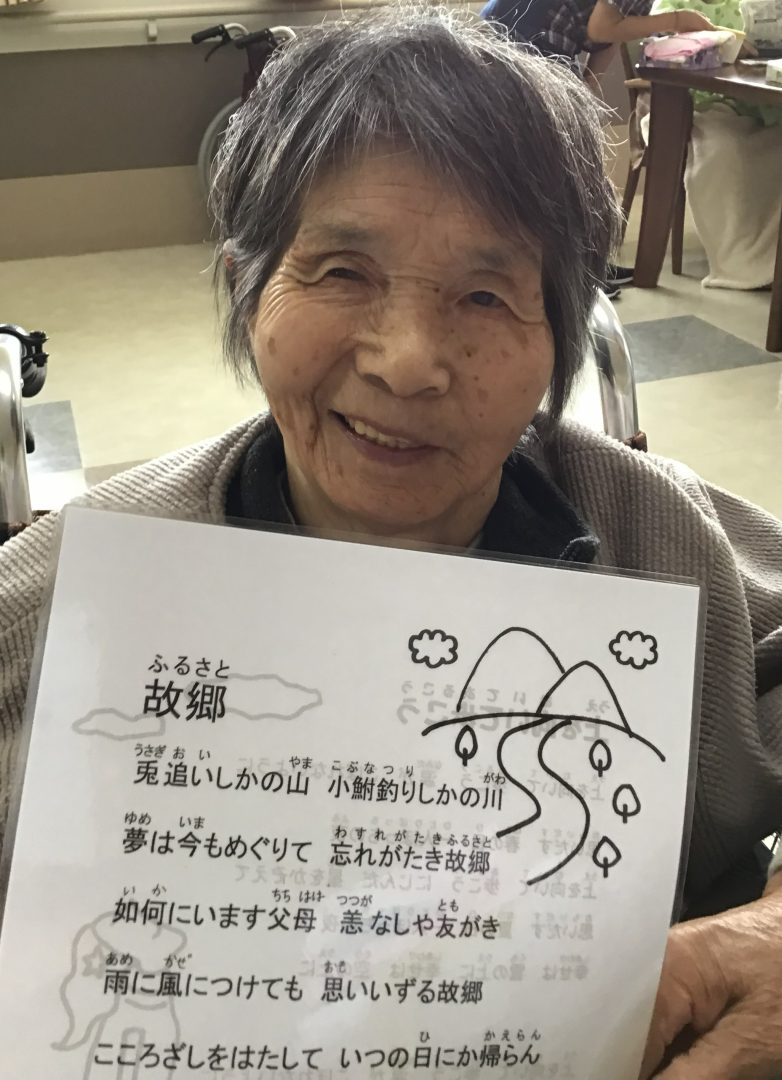 ふるさと
故郷
うさぎ お い やま こ ぶ な つ り がわ
兎追いしかの山 小鮒釣りしかの川
ゆめ いま わ す れ が た き ふるさと
夢は今もめぐりて 忘れがたき故郷
い か ちち はは つつが とも
如何にいます父母 恙なしや友がき
あめ かぜ おも
雨に風につけても 思いいずる故郷
ひ かえらん
こころざしをはたして いつの日にか帰らん